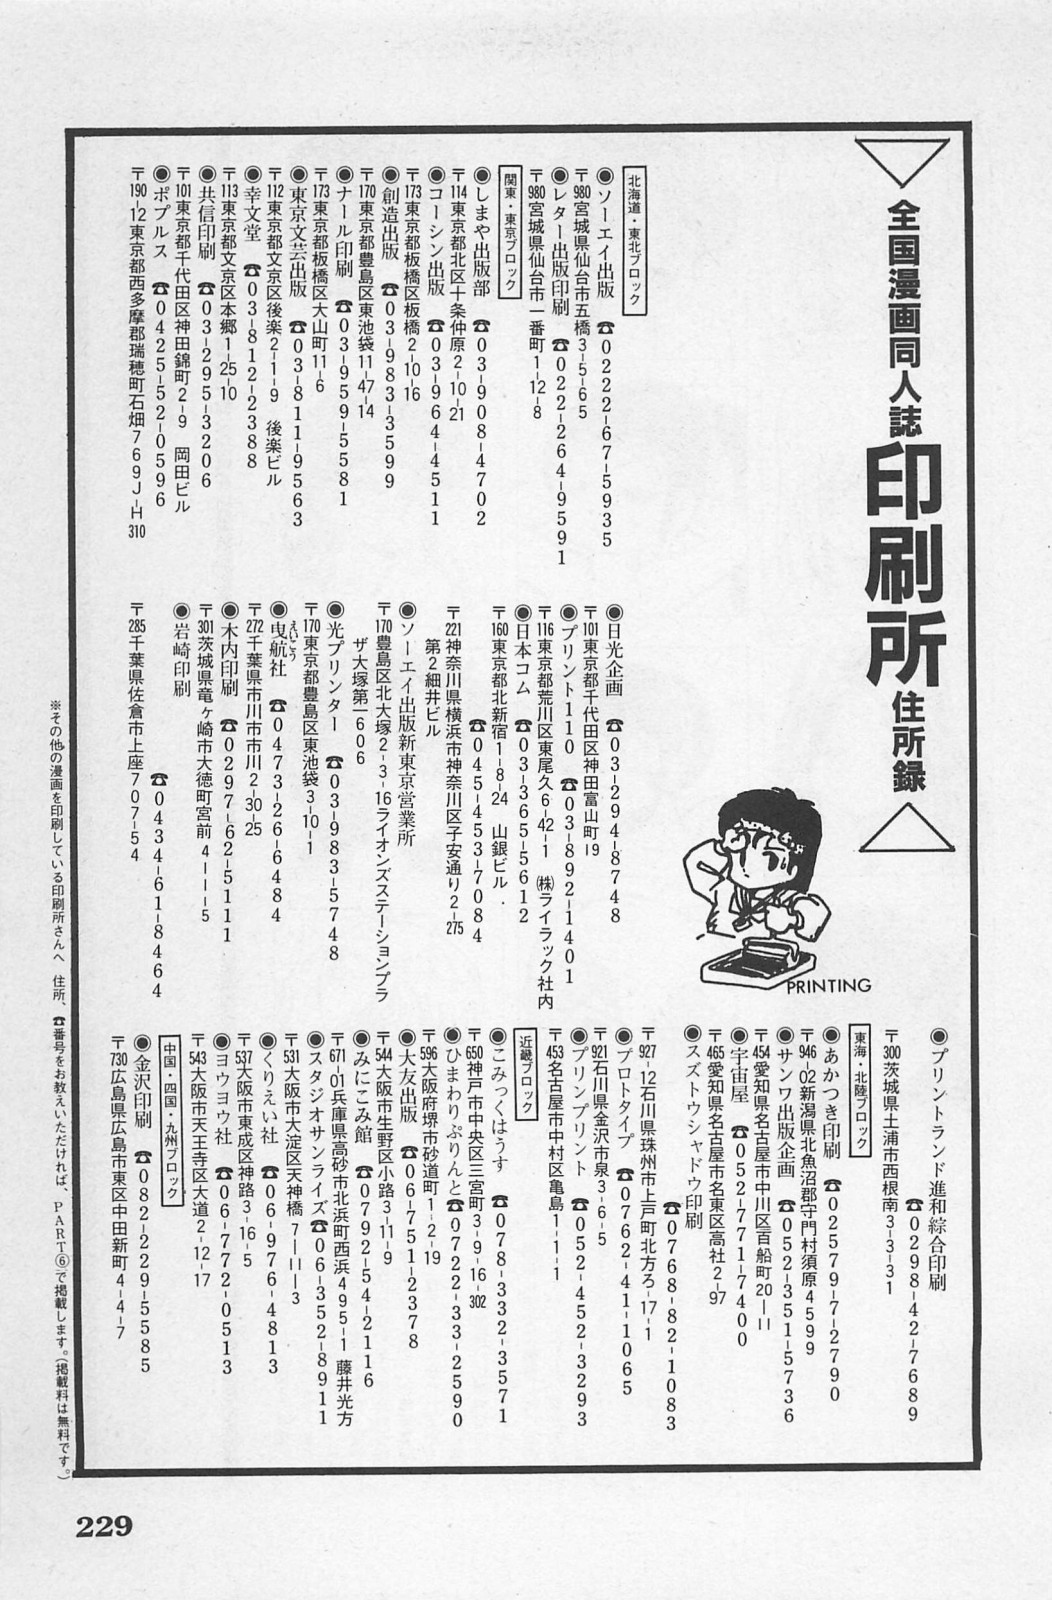 全国漫画同人誌印刷所住所録
PRINTING
北海道・東北ブロック
●ソーエイ出版 ☎0222-67-5935
〒980宮城県仙台市五橋3-5-65
●レター出版印刷 ☎022-264-9591
〒980宮城県仙台市一番町1-12-8
関東・東京ブロック
●しまや出版部 ☎03-908-4702
〒114東京都北区十条仲原2-10-21
●コーシン出版 ☎03-964-4511
〒173東京都板橋区板橋2-10-16
●創造出版 ☎03-983-3599
〒170東京都豊島区東池袋11-47-14
●ナール印刷 ☎03-959-5581
〒173東京都板橋区大山町11-6
●東京文芸出版 ☎03-811-9563
〒112東京都文京区後楽2-1-9 後楽ビル
●幸文堂 ☎03-812-2388
〒113東京都文京区本郷1-25-10
●共信印刷 ☎03-295-3206
〒101東京都千代田区神田錦町2-9 岡田ビル
●ポプルス ☎0425-52-0596
〒190-12東京都西多摩郡瑞穂町石畑769J-H310
●日光企画 ☎03-294-8748
〒101東京都千代田区神田富山町19
●プリント110 ☎03-892-1401
〒116東京都荒川区東尾久6-42-1 ㈱ライラック社内
●日本コム ☎03-365-5612
〒160東京都北新宿1-8-24 山銀ビル
☎045-453-7084
〒221神奈川県横浜市神奈川区子安通り2-275
第2細井ビル
●ソーエイ出版新東京営業所
〒170豊島区北大塚2-3-16ライオンズステーションプラ
ザ大塚第一606
●光プリンター ☎03-983-5748
〒170東京都豊島区東池袋3-10-1
えいこう
●曳航社 ☎0473-26-6484
〒272千葉県市川市市川2-30-25
●木内印刷 ☎0297-62-5111
〒301茨城県竜ヶ崎市大徳町宮前4-1-5
●岩崎印刷
☎0434-61-8464
〒285千葉県佐倉市上座707-54
●プリントランド進和綜合印刷
☎0298-42-7689
〒300茨城県土浦市西根南3-3-31
東海・北陸ブロック
●あかつき印刷 ☎02579-7-2790
〒946-02新潟県北魚沼郡守門村須原4599
●サンワ出版企画 ☎052-351-5736
〒454愛知県名古屋市中川区百船町20-11
●宇宙屋 ☎052-771-7400
〒465愛知県名古屋市名東区高社2-97
●スズトウシャドウ印刷
☎0768-82-1083
〒927-12石川県珠州市上戸町北方ろ-17-1
●プロトタイプ ☎0762-41-1065
〒921石川県金沢市泉3-6-5
●プリンプリント ☎052-452-3293
〒453名古屋市中村区亀島1-1-1
近畿ブロック
●こみっくはうす ☎078-332-3571
〒650神戸市中央区三宮町3-9-16-302
●ひまわりぷりんと☎0722-33-2590
〒596大阪府堺市砂道町1-2-19
●大友出版 ☎06-751-2378
〒544大阪市生野区小路3-11-9
●みにこみ館 ☎0792-54-2116
〒671-01兵庫県高砂市北浜町西浜495-1 藤井光方
●スタジオサンライズ☎06-352-8911
〒531大阪市大淀区天神橋7-11-3
●くりえい社 ☎06-976-4813
〒537大阪市東成区神路3-16-5
●ヨウヨウ社 ☎06-772-0513
〒543大阪市天王寺区大道2-12-17
中国・四国・九州ブロック
●金沢印刷 ☎082-229-5585
〒730広島県広島市東区中田新町4-4-7
※その他の漫画を印刷している印刷所さんへ 住所、☎番号をお教えいただければ、PART⑥で掲載します。(掲載料は無料です。)
229